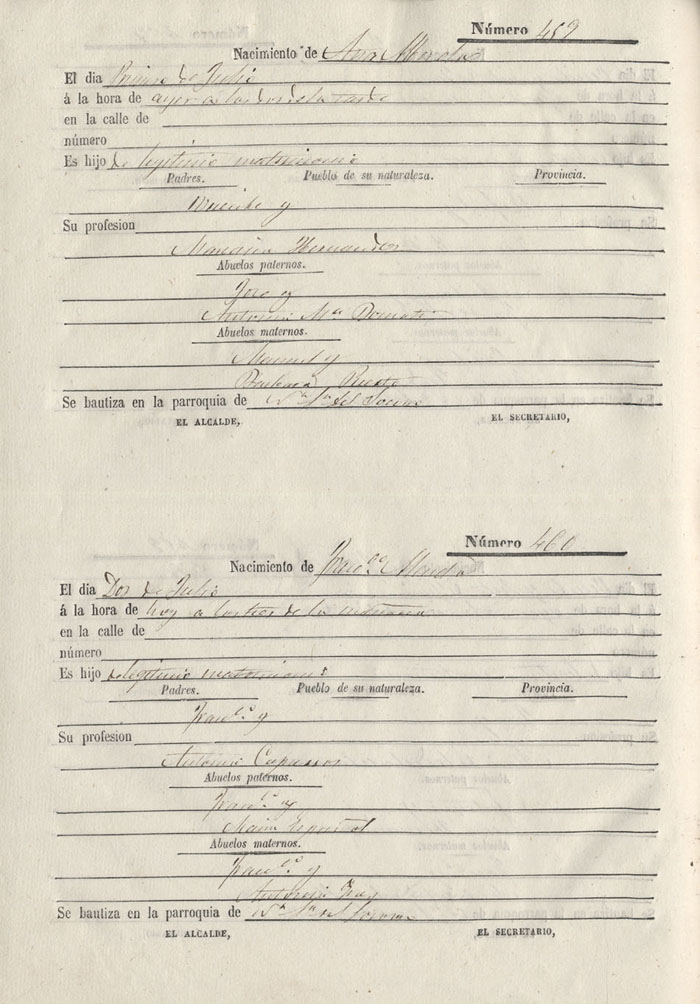 Número 459
Nacimiento de Ana Morales
El dia Primero de Julio
á la hora de ayer a las dos de la tarde
en la calle de
número
Es hijo de legitimo matrimonio
Padres. Pueblo de su naturaleza. Provincia.
Vicente y
Su profesion
Mariana Hernandez
Abuelos paternos.
Jose y
Antonia Mª
Abuelos maternos.
Manuel y
Barbara
Se bautiza en la parroquia de Nª Sª del Socorro
EL ALCALDE, EL SECRETARIO,
Número 460
Nacimiento de Franco
El dia Dos de Julio
á la hora de hoy a las tres de la mañana
en la calle de
número
Es hijo de legitimo matrimonio
Padres. Pueblo de su naturaleza. Provincia.
Franco y
Su profesion
Antonia Caparros
Abuelos paternos.
Franco y
Maria
Abuelos maternos.
Franco y
Antonia
Se bautiza en la parroquia de Nª Sª del Socorro
EL ALCALDE, EL SECRETARIO,